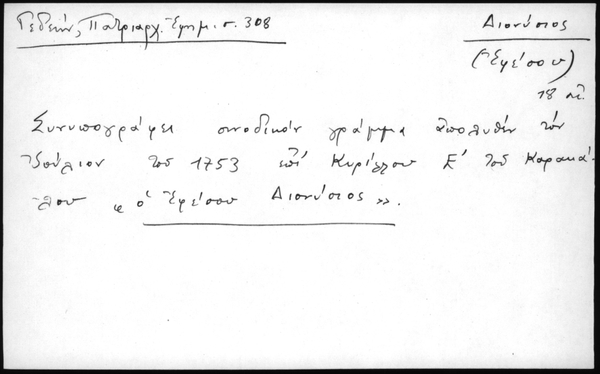 Γεδεών, Πατριαρχ. Ἐφημ. σ. 308
Διονύσιος
(Ἐφέσου)
18 αἰ.
Συνυπογράφει συνοδικόν γράμμα ἀπολυθέν τόν
Ἰούλιον τοῦ 1753 ἐπί Κυρίλλου Ε' τοῦ Καρακά-
λλου «ὁ Ἐφέσου Διονύσιος».